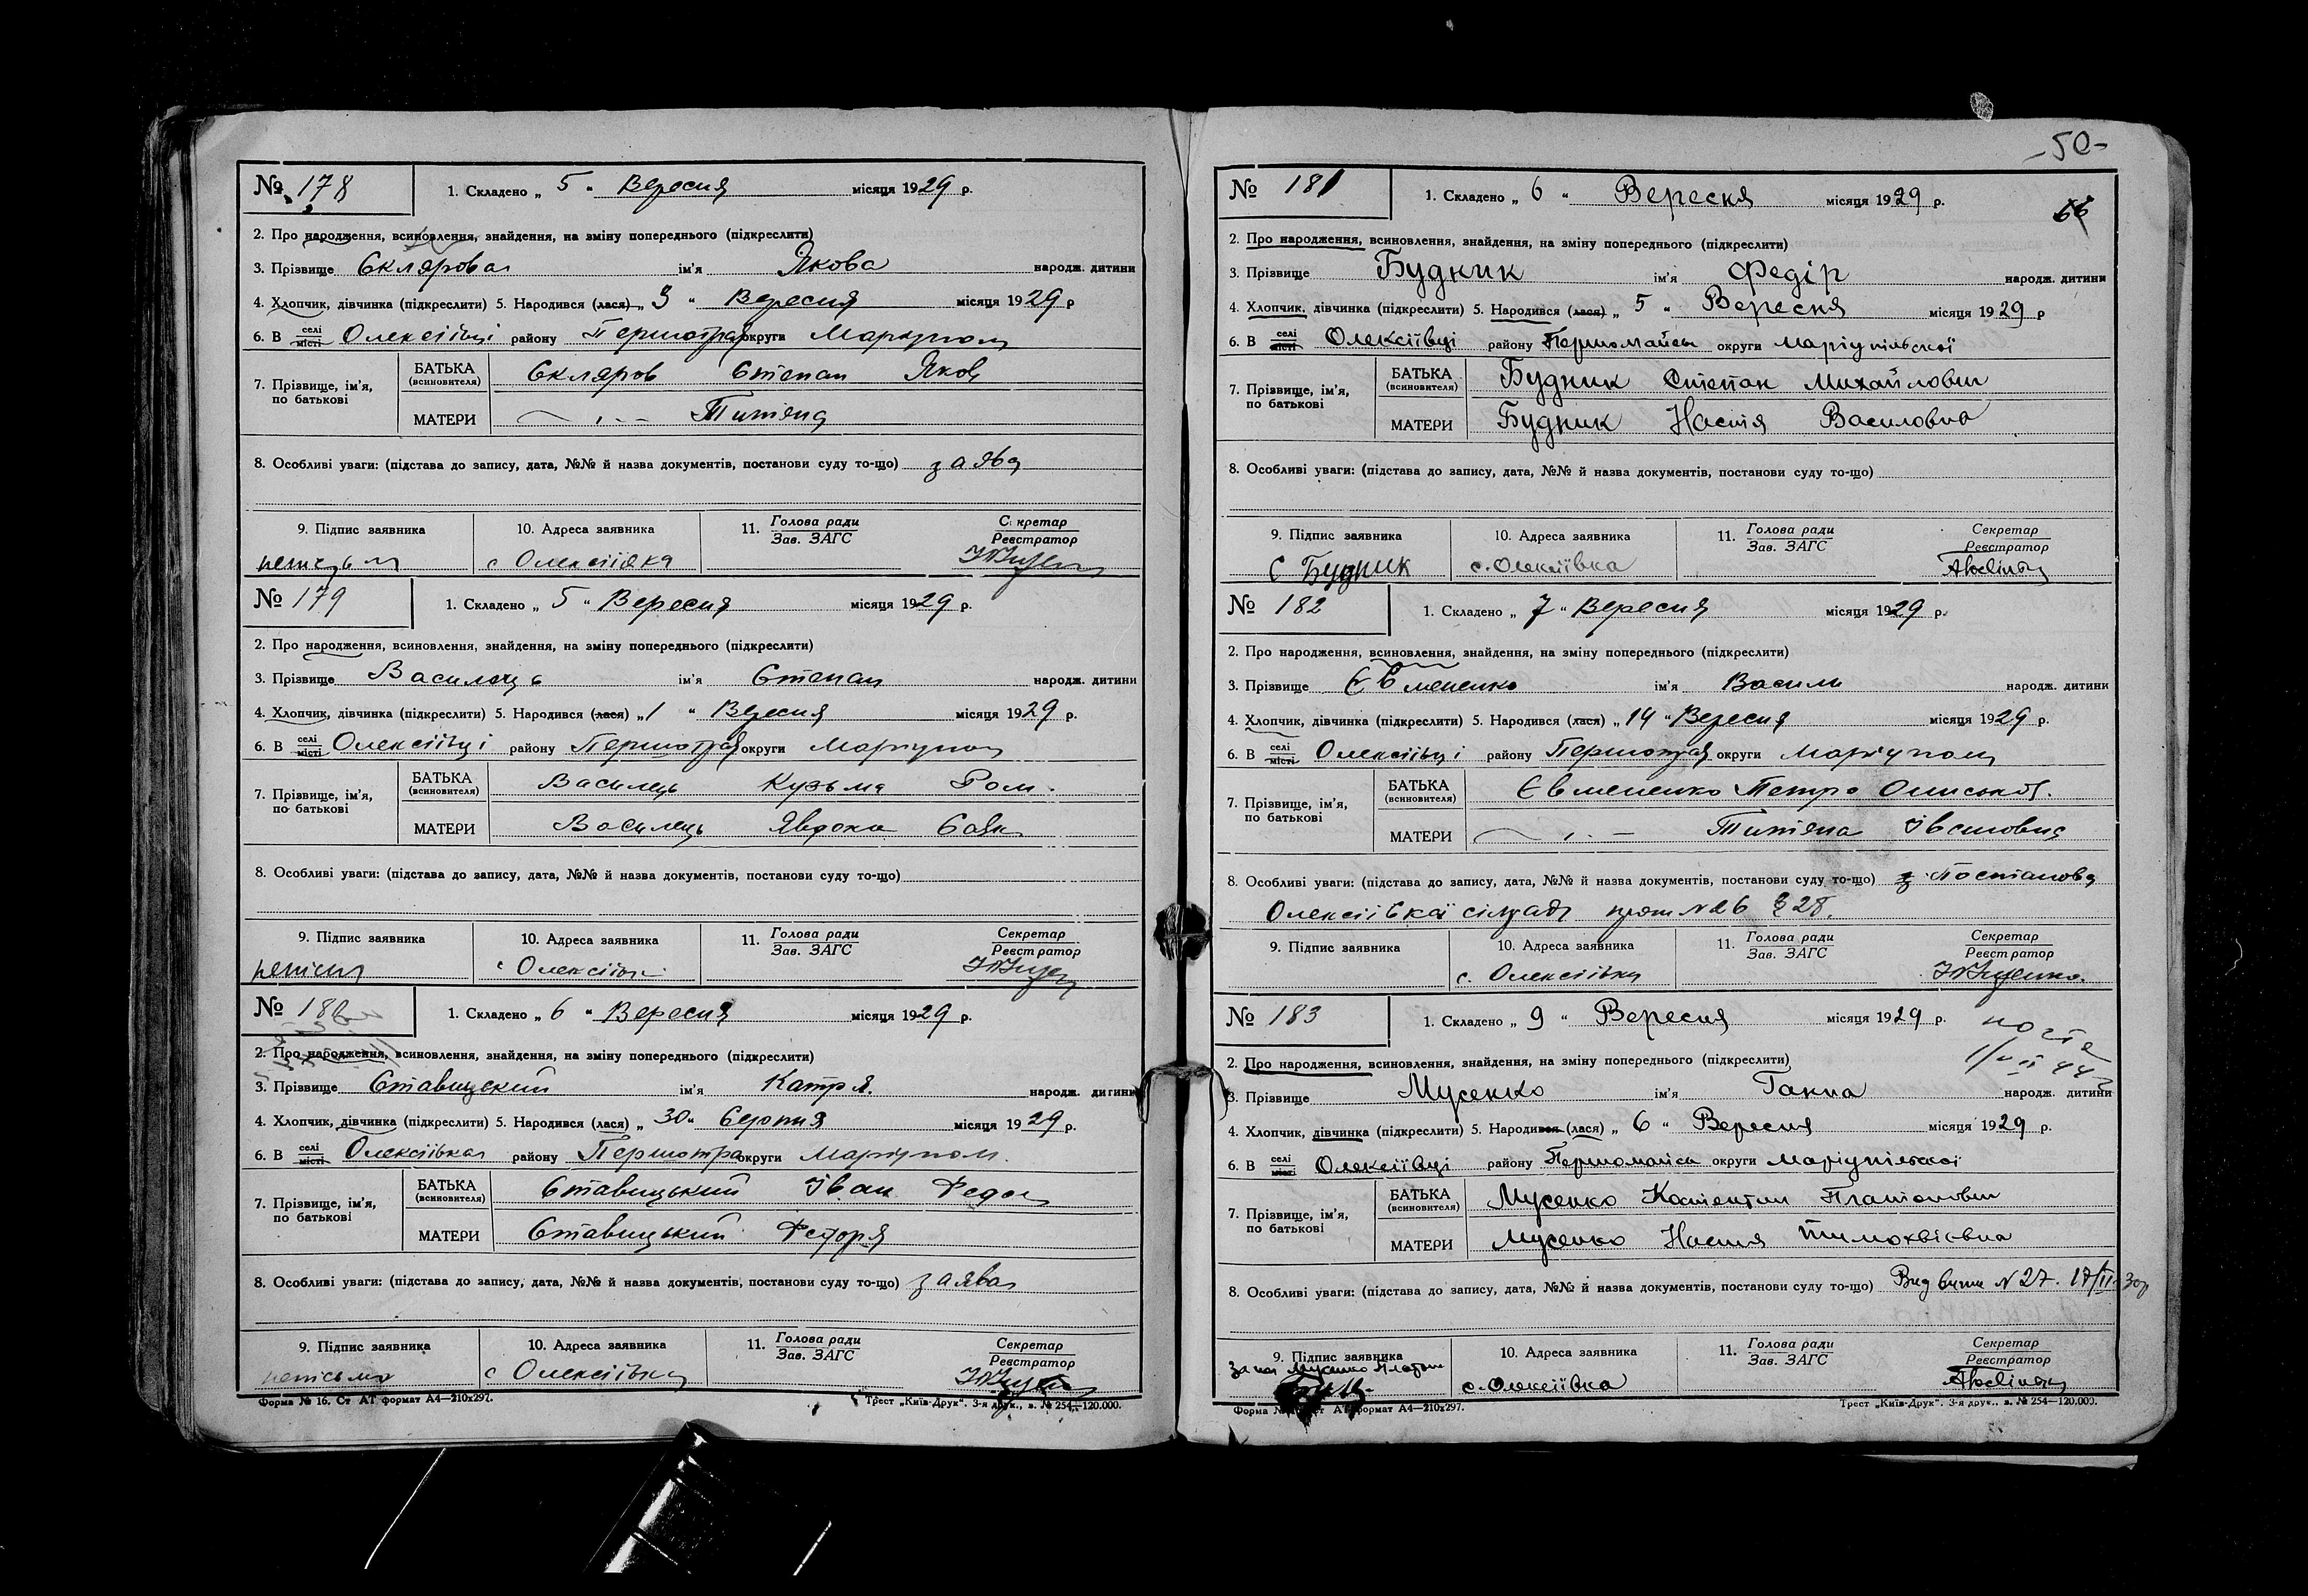 № 178
1. Складено „ 5 “ Вересня місяця 1929 р.
2. Про народження, всиновлення, знайдення, на зміну попереднього (підкреслити)
3. Прізвище Склярова ім’я Якова народж. дитини
4. Хлопчик, дівчинка (підкреслити) 5. Народився (лася) „ 3 “ Вересня місяця 1929 р
6. В селі місті Олексіївці району Першотрав округи Маріупол
7. Прізвище, ім’я, по батькові
БАТЬКА (всиновителя) Скляров Степан Яков
МАТЕРИ — „ — Титяна
8. Особливі уваги: (підстава до запису, дата, №№ й назва документів, постанови суду то-що) заява
9. Підпис заявника 10. Адреса заявника 11. Голова ради Зав. ЗАГС Секретар Реєстратор
с Олексіївка
№ 179
1. Складено „ 5 “ Вересня місяця 1929 р.
2. Про народження, всиновлення, знайдення, на зміну попереднього (підкреслити)
3. Прізвище Василець ім’я Степан народж. дитини
4. Хлопчик, дівчинка (підкреслити) 5. Народився (лася) „ 1 “ Вересня місяця 1929 р.
6. В селі місті Олексіївці району Першотрав округи Маріупол
7. Прізвище, ім’я, по батькові
БАТЬКА (всиновителя) Василець Кузьма Ром.
МАТЕРИ Василець Явдоха
8. Особливі уваги: (підстава до запису, дата, №№ й назва документів, постанови суду то-що)
9. Підпис заявника 10. Адреса заявника 11. Голова ради Зав. ЗАГС Секретар Реєстратор
с Олексіївк
№ 180
1. Складено „ 6 “ Вересня місяця 1929 р.
2. Про народження, всиновлення, знайдення, на зміну попереднього (підкреслити)
3. Прізвище Ставицский ім’я Катря. народж. дитини
4. Хлопчик, дівчинка (підкреслити) 5. Народився (лася) „ 30 “ Серпня місяця 1929 р.
6. В селі місті Олексіївка району Першотра округи Маріупол.
7. Прізвище, ім’я, по батькові
БАТЬКА (всиновителя) Ставицький Іван Федо
МАТЕРИ Ставицький
8. Особливі уваги: (підстава до запису, дата, №№ й назва документів, постанови суду то-що) заява
9. Підпис заявника 10. Адреса заявника 11. Голова ради Зав. ЗАГС Секретар Реєстратор
с Олексіївка
Форма № 16. Ст АТ формат А4—210х297. Трест „Київ-Друк“. 3-я друк., в. № 254—120.000.
-50-
№ 181
1. Складено „ 6 “ Вересня місяця 1929 р.
66
2. Про народження, всиновлення, знайдення, на зміну попереднього (підкреслити)
3. Прізвище Будник ім’я Федір народж. дитини
4. Хлопчик, дівчинка (підкреслити) 5. Народився (лася) „ 5 “ Вересня місяця 1929 р
6. В селі місті Олексіївці району Першомайськ округи Маріупільської
7. Прізвище, ім’я, по батькові
БАТЬКА (всиновителя) Будник Степан Михайлович
МАТЕРИ Будник Настя Василовна
8. Особливі уваги: (підстава до запису, дата, №№ й назва документів, постанови суду то-що)
9. Підпис заявника 10. Адреса заявника 11. Голова ради Зав. ЗАГС Секретар Реєстратор
С Будник с. Олексіївка
№ 182
1. Складено „ 7 “ Вересня місяця 1929 р.
2. Про народження, всиновлення, знайдення, на зміну попереднього (підкреслити)
3. Прізвище Євмененко ім’я Василь народж. дитини
4. Хлопчик, дівчинка (підкреслити) 5. Народився (лася) „ 14 “ Вересня місяця 1929 р.
6. В селі місті Олексіївці району Першотрав округи Маріупол
7. Прізвище, ім’я, по батькові
БАТЬКА (всиновителя) Євмененко Петро
МАТЕРИ — „ — Титяна Івановна
8. Особливі уваги: (підстава до запису, дата, №№ й назва документів, постанови суду то-що) Постанова
Олексіївскої сільради прот № 26 § 28.
9. Підпис заявника 10. Адреса заявника 11. Голова ради Зав. ЗАГС Секретар Реєстратор
с. Олексіївка
№ 183
1. Складено „ 9 “ Вересня місяця 1929 р.
2. Про народження, всиновлення, знайдення, на зміну попереднього (підкреслити)
3. Прізвище Мусенко ім’я Ганна народж. дитини
4. Хлопчик, дівчинка (підкреслити) 5. Народився (лася) „ 6 “ Вересня місяця 1929 р.
6. В селі місті Олексіївці району Першомайськ округи Маріупільської
7. Прізвище, ім’я, по батькові
БАТЬКА (всиновителя) Мусенко Костентин Платонович
МАТЕРИ Мусенко Настя Тимохвієвна
8. Особливі уваги: (підстава до запису, дата, №№ й назва документів, постанови суду то-що) N 27.
9. Підпис заявника 10. Адреса заявника 11. Голова ради Зав. ЗАГС Секретар Реєстратор
Мусенко Платон с. Олексіївка
Форма № Ст АТ формат А4—210х297. Трест „Київ-Друк“. 3-я друк., в. № 254—120.000.